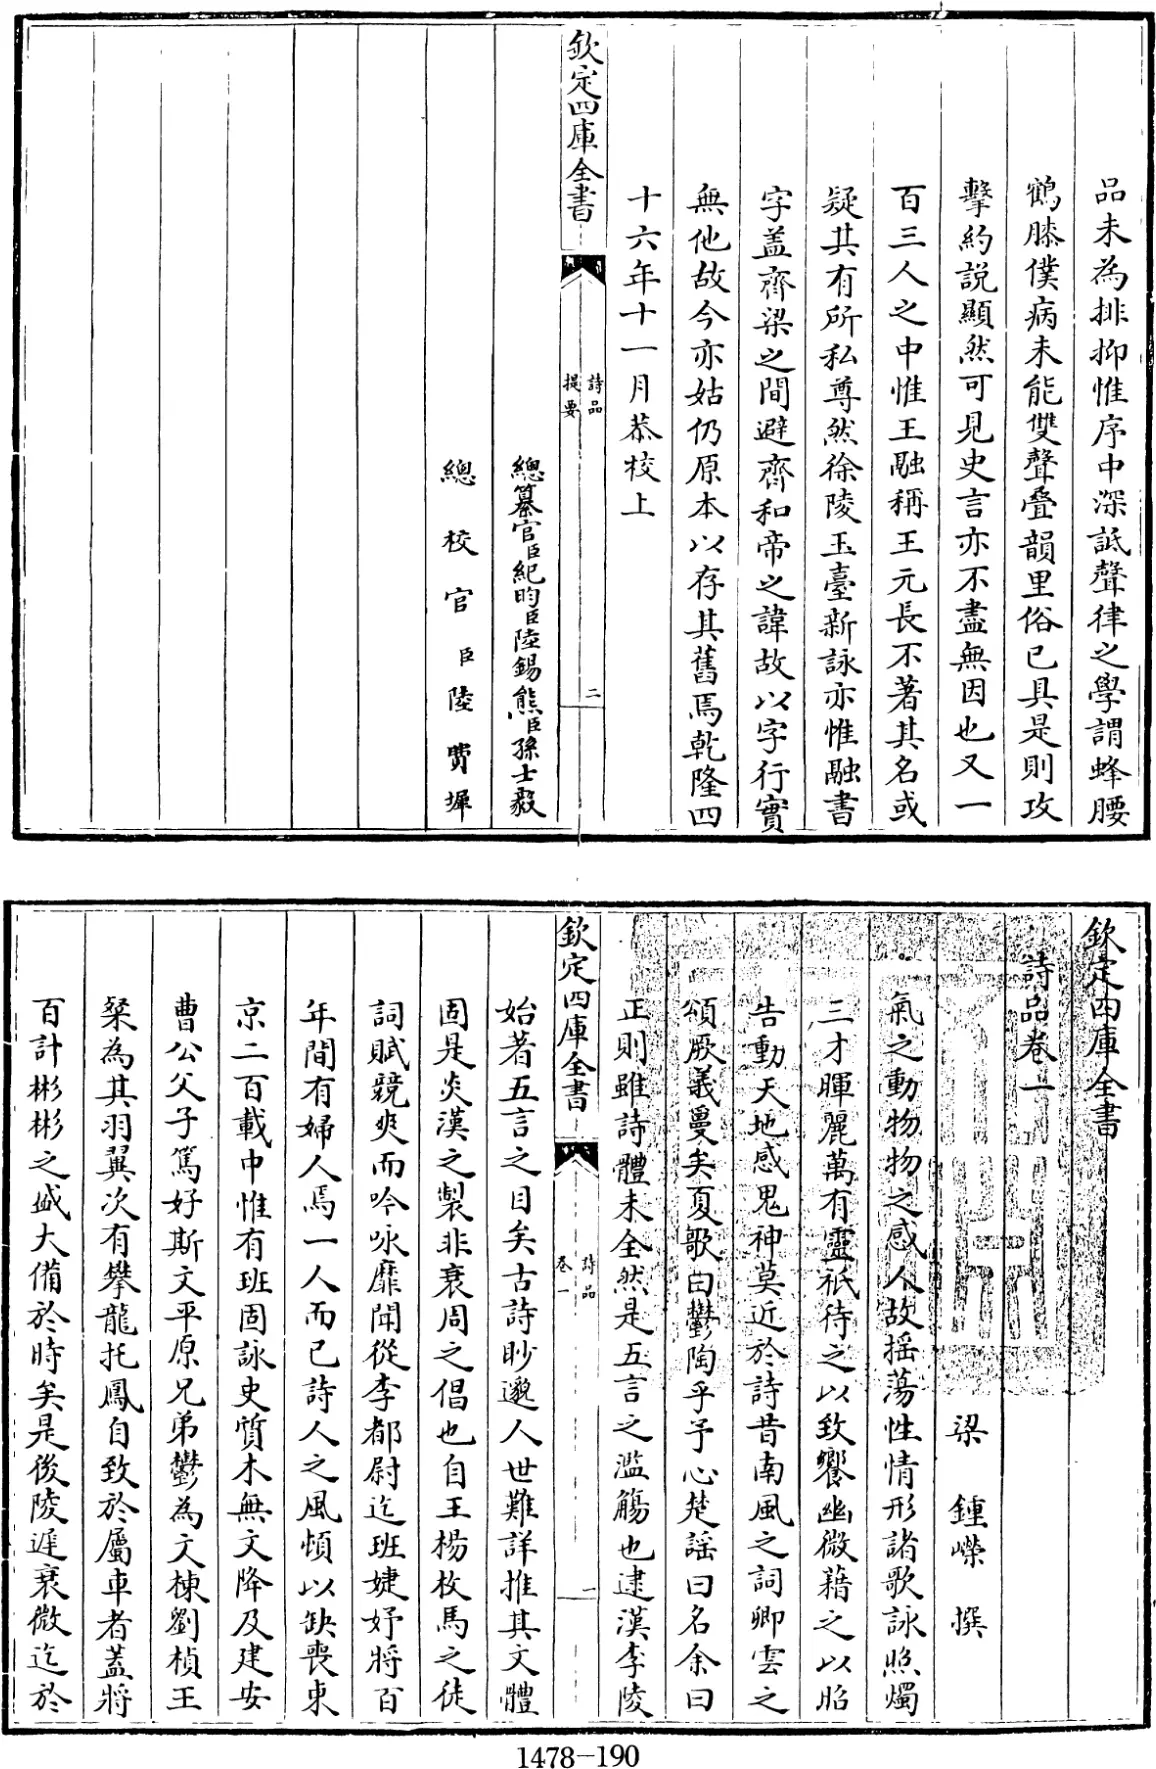 品未為排抑惟序中深詆聲律之學謂蜂腰
鶴膝僕病未能雙聲疊韻里俗已具是則攻
擊約說顯然可見史言亦不盡無因也又一
百三人之中惟王融稱王元長不著其名或
疑其有所私尊然徐陵玉臺新詠亦惟融書
字盖齊梁之間避齊和帝之諱故以字行實
無他故今亦姑仍原本以存其舊焉乾隆四
十六年十一月恭校上
欽定四庫全書
詩品
提要
二
總纂官臣紀昀臣陸錫熊臣孫士毅
總校官臣陸費墀
欽定四庫全書
詩品卷一
梁 鍾嶸 撰
氣之動物物之感人故搖蕩性情形諸歌詠照燭
三才暉麗萬有靈祇待之以致饗幽微藉之以昭
告動天地感鬼神莫近於詩昔南風之詞卿雲之
頌厥義夐矣夏歌曰鬱陶乎予心楚謡曰名余曰
正則雖詩體未全然是五言之濫觴也逮漢李陵
欽定四庫全書
詩品
卷一
一
始著五言之目矣古詩眇邈人世難詳推其文體
固是炎漢之製非衰周之倡也自王楊枚馬之徒
詞賦競爽而吟咏靡聞從李都尉迄班婕妤將百
年間有婦人焉一人而已詩人之風頓以缺喪東
京二百載中惟有班固詠史質木無文降及建安
曹公父子篤好斯文平原兄弟鬱為文棟劉楨王
粲為其羽翼次有攀龍托鳳自致於屬車者蓋將
百計彬彬之盛大備於時矣是後陵遲衰微迄於
1478-190